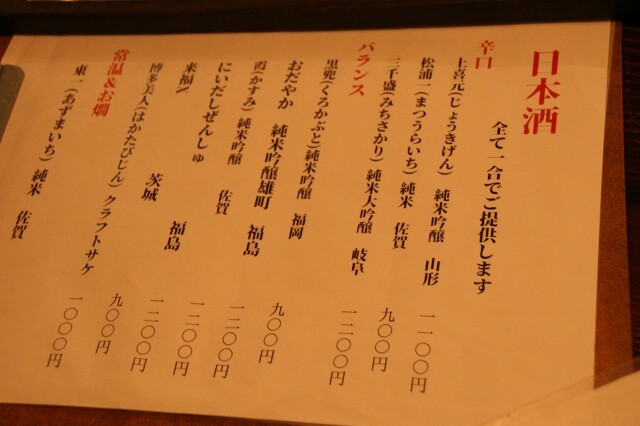 日本酒
全て一合でご提供します
辛口
上喜元(じょうきげん) 純米吟醸 山形 一一〇〇円
松浦一(まつうらいち) 純米 佐賀 九〇〇円
三千盛(みちさかり) 純米大吟醸 岐阜 一二〇〇円
バランス
黒兜(くろかぶと)純米吟醸 福岡 九〇〇円
おだやか 純米吟醸雄町 福島 一二〇〇円
霞(かすみ) 純米吟醸 佐賀 一二〇〇円
にいだしぜんしゅ 福島 一二〇〇円
来福\ 茨城 九〇〇円
博多美人(はかたびじん) クラフトサケ 一〇〇〇円
常温&お燗
東一(あずまいち) 純米 佐賀